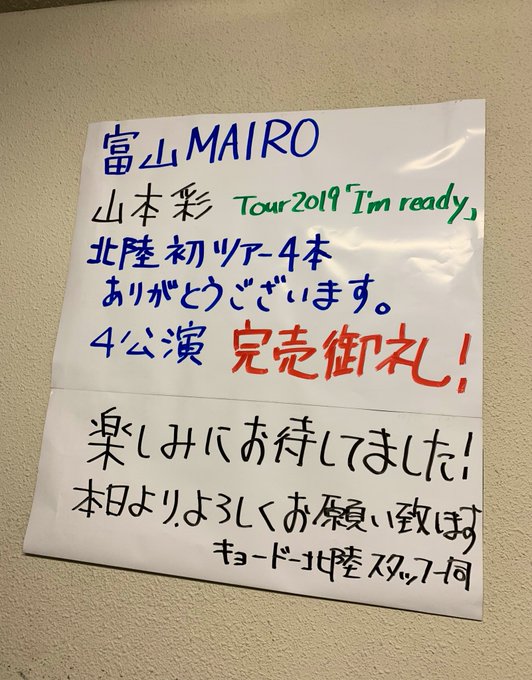 富山MAIRO
山本彩 Tour2019「I'm ready」
北陸初ツアー4本
ありがとうございます。
4公演 完売御礼!
楽しみにお待してました!
本日より、よろしくお願い致します
キョードー北陸スタッフ一同